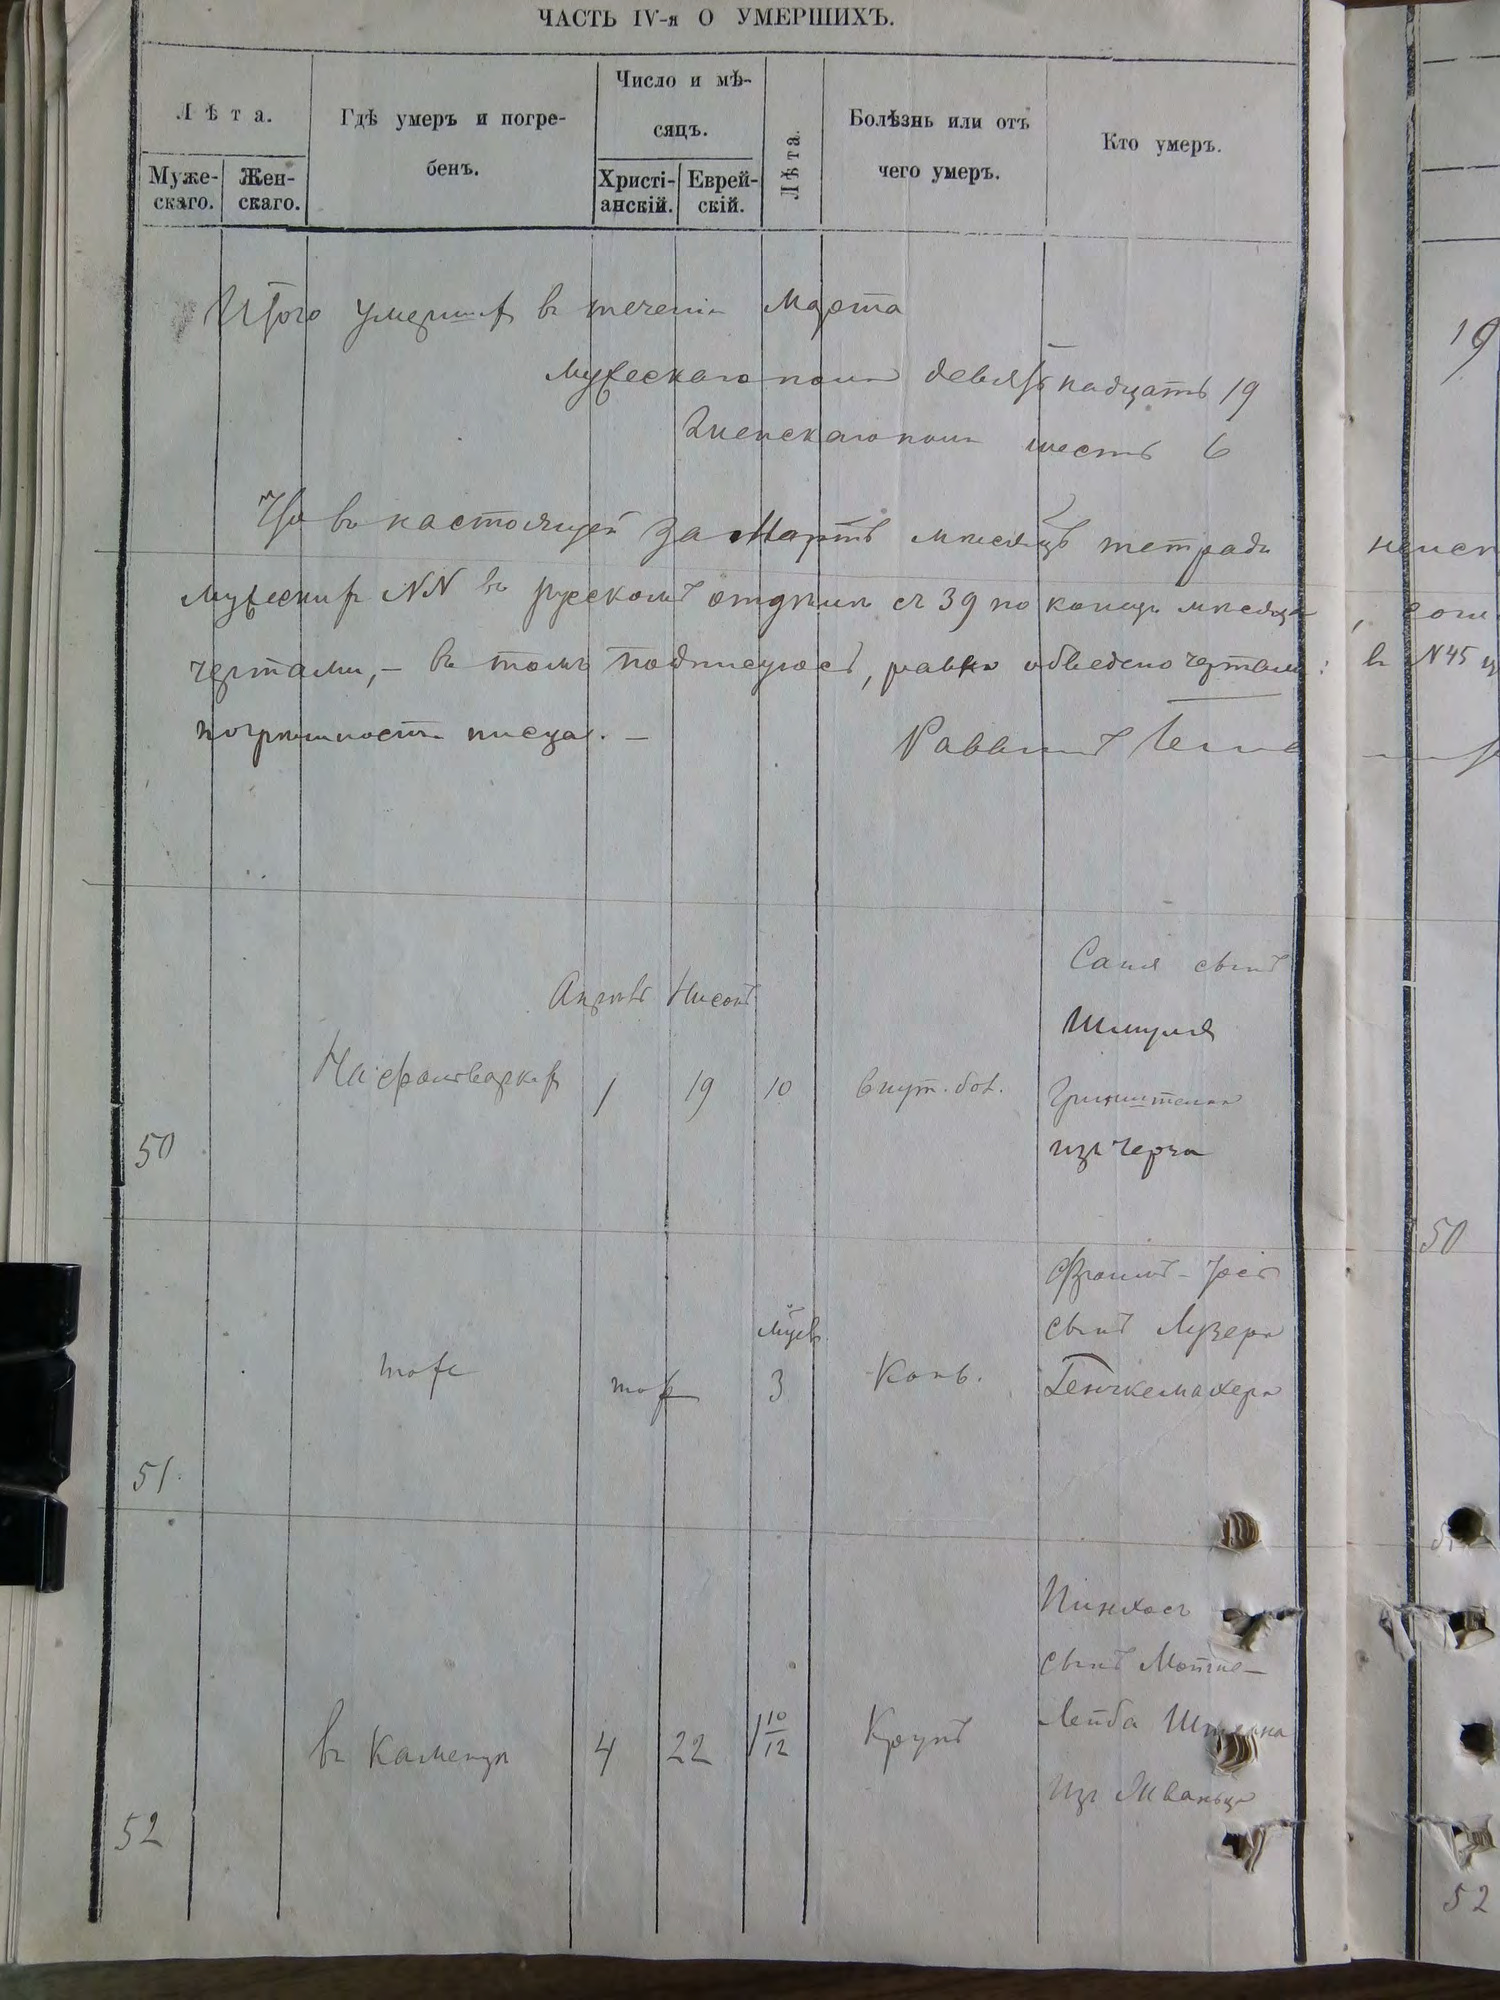 ЧАСТЬ IV-я О УМЕРШИХЪ.
Лѣта.
Мужескаго.
Женскаго.
Гдѣ умеръ и погребенъ.
Число и мѣсяцъ.
Христіанскій.
Еврейскій.
Лѣта.
Болѣзнь или отъ чего умеръ.
Кто умеръ.
Итого умерших в течении Марта
мужескаго пола девятьнадцать 19
Женскаго пола шесть 6
19
Что в настоящей за Мартъ месяцъ тетради
мужских NN в русскомъ отделе съ 39 по конецъ месяца
чертами, - в томъ подписуюсь, равно обведено чертами: в N 45
погрешность писца. -
Раввинъ
Апрель Нисонъ
50
На фольварках
1
19
10
внут. бол.
Саня сынъ
Шмуля
Гринштейна
изъ
50
51
тоже
тож
3
Конв.
Фроимъ - Іосъ
сынъ Лузера
52
в Каменце
4
22
1 10/12
Крупъ
Пинхосъ
сынъ Мотте-
Лейба Штерна
изъ Жванца
52